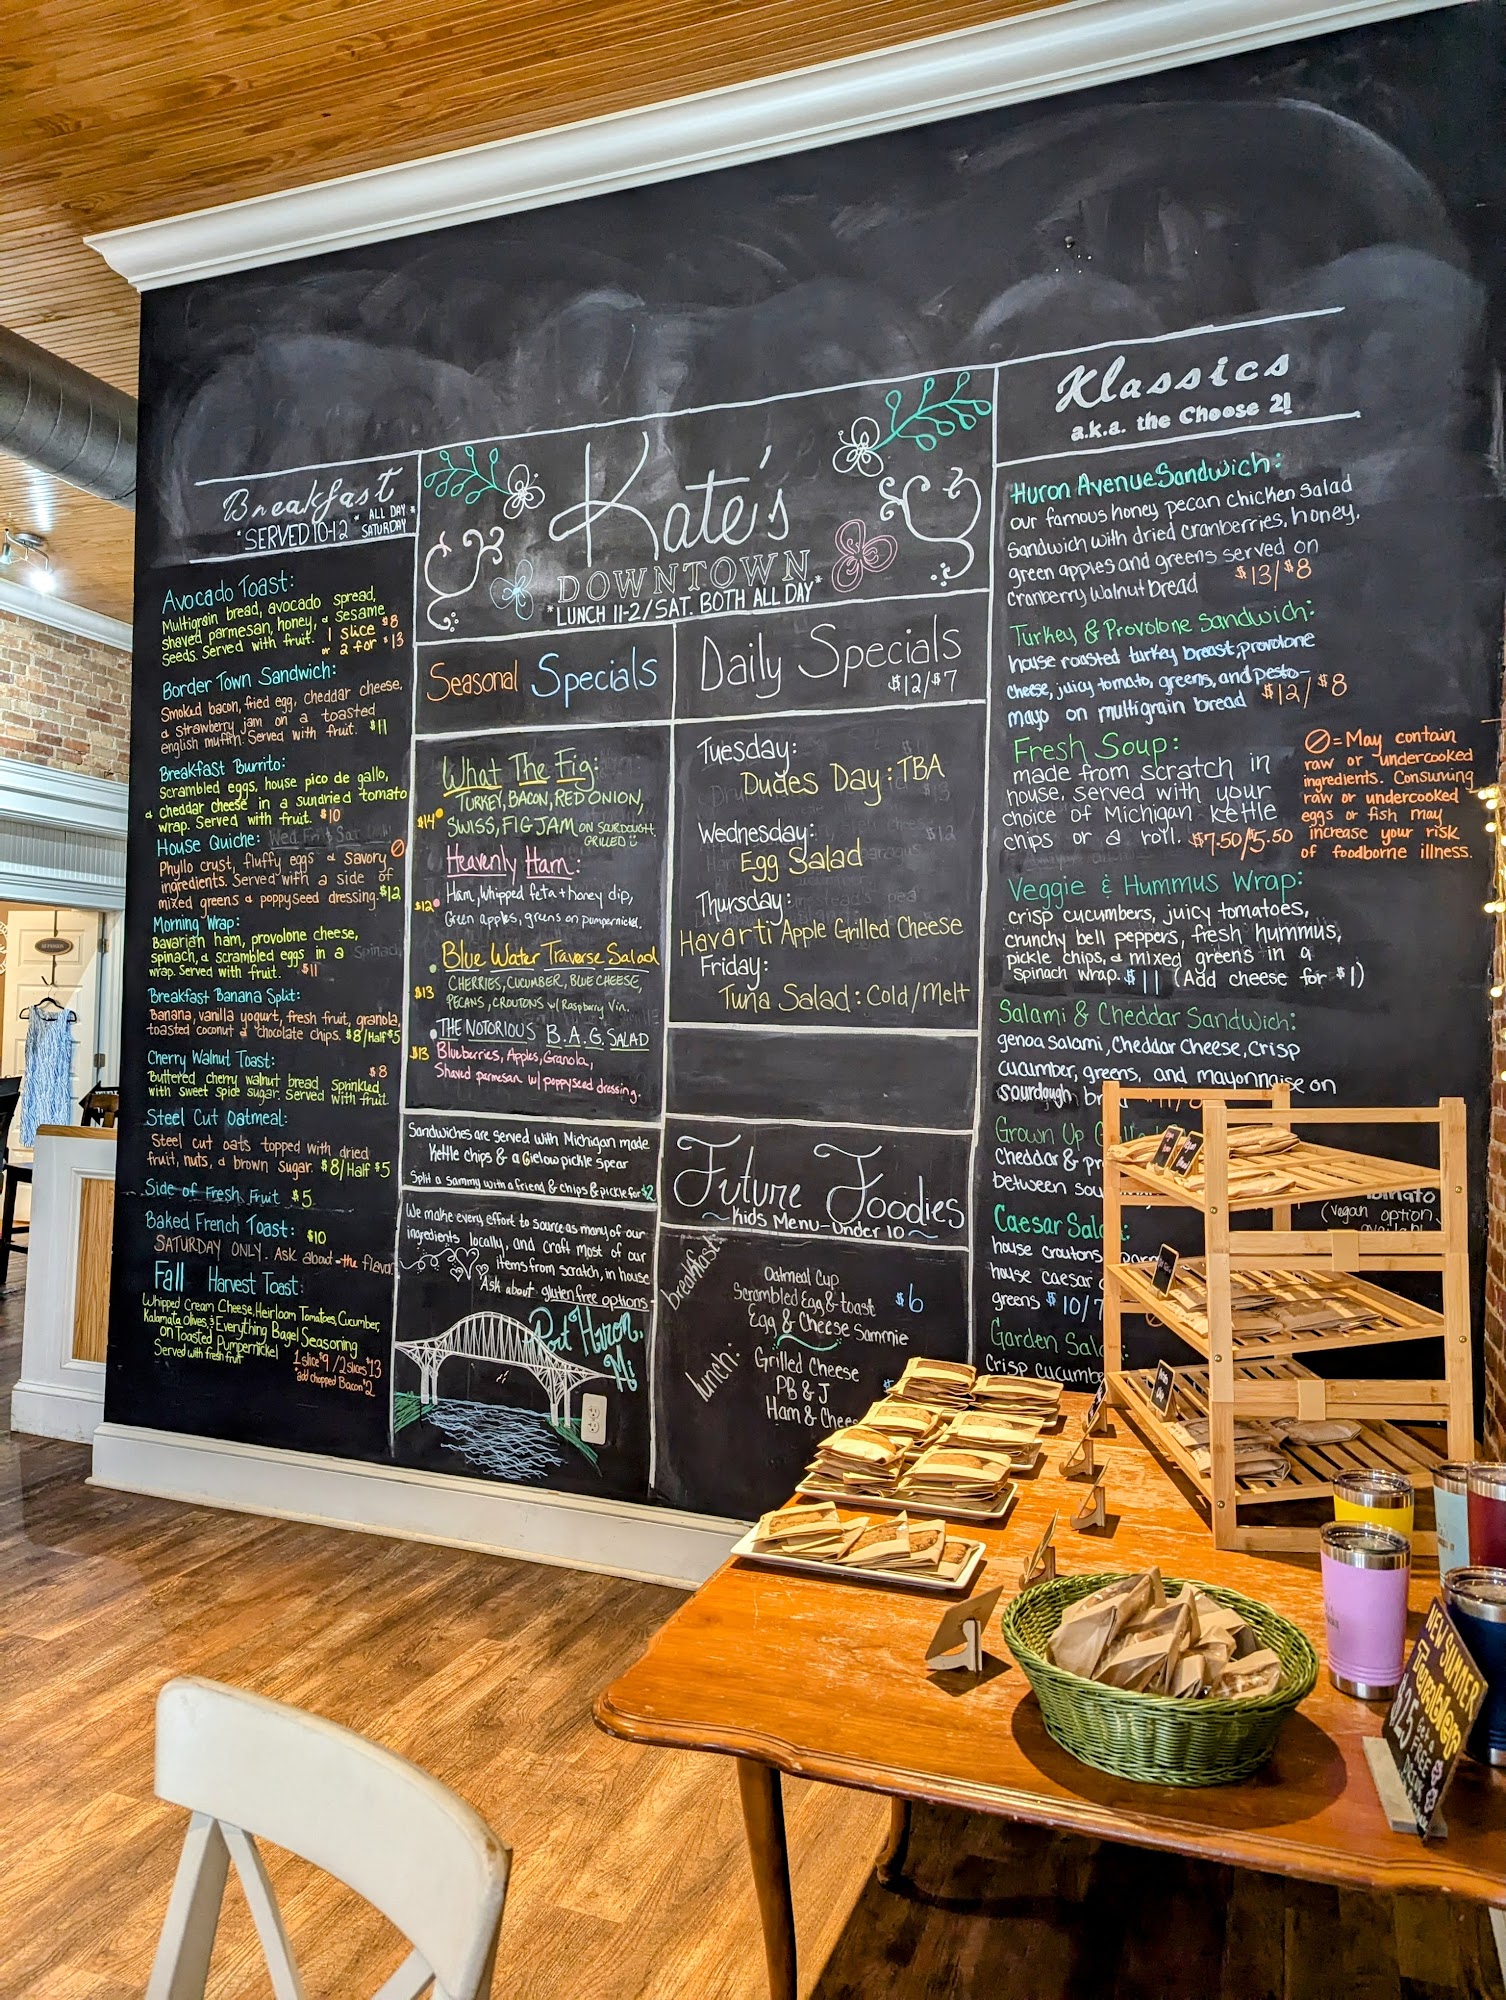 Breakfast
*SERVED 10-12 * ALL DAY * SATURDAY
Avocado Toast:
Multigrain bread, avocado spread,
shaved parmesan, honey, & sesame
seeds. Served with fruit. 1 slice $8
or 2 for $13
Border Town Sandwich:
Smoked bacon, fried egg, cheddar cheese,
& strawberry jam on a toasted
english muffin. Served with fruit. $11
Breakfast Burrito:
Scrambled eggs, house pico de gallo,
& cheddar cheese in a sundried tomato
wrap. Served with fruit. $10
House Quiche:
Phyllo crust, fluffy eggs & savory
ingredients. Served with a side of
mixed greens & poppyseed dressing. $12
Morning Wrap:
Bavarian ham, provolone cheese,
spinach, & scrambled eggs in a Spinach
wrap. Served with fruit. $11
Breakfast Banana Split:
Banana, vanilla yogurt, fresh fruit, granola,
toasted coconut & chocolate chips. $8/Half $5
Cherry Walnut Toast: $8
Buttered cherry walnut bread, Sprinkled
with sweet spice sugar. Served with fruit
Steel Cut Oatmeal:
Steel cut oats topped with dried
fruit, nuts, & brown sugar. $8/Half $5
Side of Fresh Fruit $5
Baked French Toast: $10
SATURDAY ONLY. Ask about the flavor
Fall Harvest Toast:
Whipped Cream Cheese, Heirloom Tomatoes, Cucumber,
Kalamata Olives, & Everything Bagel Seasoning
on Toasted Pumpernickel
Served with fresh fruit
1 slice $9 / 2 slices $13
*add chopped Bacon $2
Kate's
DOWNTOWN
*LUNCH 11-2/SAT. BOTH ALL DAY*
Seasonal Specials
What The Fig:
$14 TURKEY, BACON, RED ONION,
SWISS, FIG JAM ON SOURDOUGH
GRILLED
Heavenly Ham:
$12 Ham, whipped feta + honey dip,
Green apples, greens on pumpernickel.
Blue Water Traverse Salad
$13 CHERRIES, CUCUMBER, BLUE CHEESE,
PECANS, CROUTONS w/ Raspberry Vin.
THE NOTORIOUS B.A.G. SALAD
$13 Blueberries, Apples, Granola,
Shaved parmesan w/ poppyseed dressing.
Sandwiches are served with Michigan made
Kettle chips & a Gielow pickle spear
Split a sammy with a friend & chips & pickle for $2
We make every effort to source as many of our
ingredients locally, and craft most of our
items from scratch, in house
Ask about gluten free options
Port Huron,
Mi
Daily Specials
$12/$7
Tuesday:
Dudes Day: TBA
Wednesday:
Egg Salad
Thursday:
Havarti Apple Grilled Cheese
Friday:
Tuna Salad: Cold/Melt
Future Foodies
~Kids Menu-Under 10~
breakfast:
Oatmeal Cup
Scrambled Egg & toast $6
Egg & Cheese Sammie
lunch:
Grilled Cheese
PB & J
Ham & Chees
Klassics
a.k.a. the Choose 2!
Huron Avenue Sandwich:
our famous honey pecan chicken salad
sandwich with dried cranberries, honey,
green apples and greens served on
cranberry walnut bread $13/$8
Turkey & Provolone Sandwich:
house roasted turkey breast, provolone
cheese, juicy tomato, greens, and pesto-
mayo on multigrain bread $12/$8
Fresh Soup:
made from scratch in
house, served with your
choice of Michigan kettle
chips or a roll. $7.50/5.50
=May contain
raw or undercooked
ingredients. Consuming
raw or undercooked
eggs or fish may
increase your risk
of foodborne illness.
Veggie & Hummus Wrap:
crisp cucumbers, juicy tomatoes,
crunchy bell peppers, fresh hummus,
pickle chips, & mixed greens in a
spinach wrap. $11 (Add cheese for $1)
Salami & Cheddar Sandwich:
genoa salami, cheddar cheese, crisp
cucumber, greens, and mayonnaise on
sourdough
Grown Up
Cheddar &
between
(vegan option
Caesar Sal
house croutons,
house caesar
greens $10/7
Garden Sal
Crisp cucumbe
NEW SUMMER
Tumblers
$25
FREE